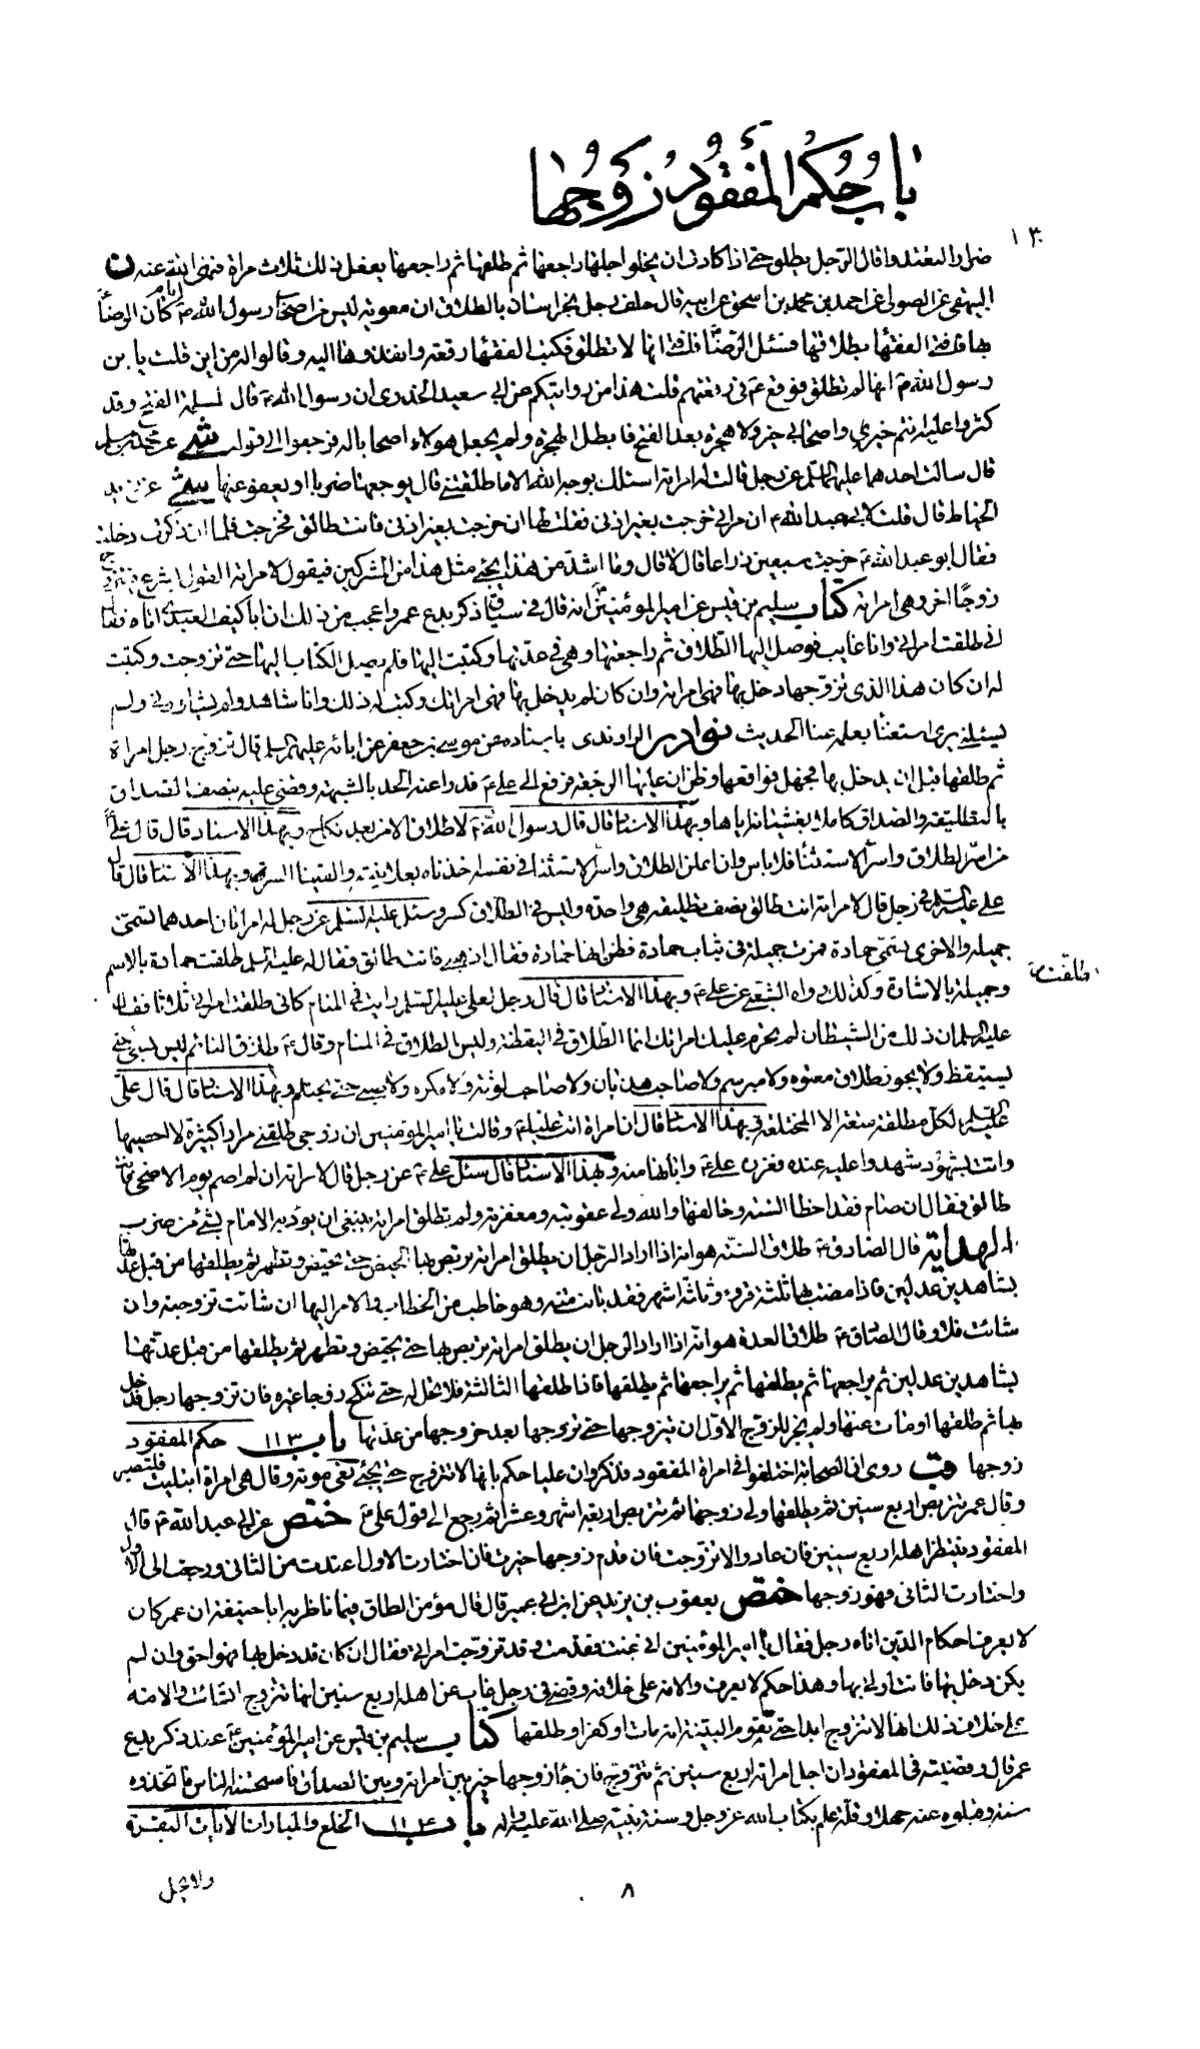 باب حكم المفقود زوجها
١٣٠
ضرارا لتعتدوا قال الرجل يطلق حتى اذا كادت ان يخلو اجلها راجعها ثم طلقها ثم راجعها يفعل ذلك ثلاث مرات فنهى الله عنه ن
البيهقى عن الصولى عن احمد بن محمد بن اسحق عن ابيه قال حلف رجل بخراسان بالطلاق ان معوية ليس من اصحاب رسول الله ص ايام كان الرضا
بها فافتى الفقهاء بطلاقها فسئل الرضا فافتى انها لا تطلق فكتب الفقهاء رقعة وانفذوها اليه وقالوا له من اين قلت يا بن
رسول الله ص انها لم تطلق فوقع ع فى رقعتهم قلت هذا من روايتكم عن ابى سعيد الخدرى ان رسول الله ص قال لمسلمة الفتح وقد
كثروا عليه انتم خير واصحابى خير ولا هجرة بعد الفتح فابطل الهجرة ولم يجعل هؤلاء اصحابا له فرجعوا الى قوله شى عن محمد بن مسلم
قال سالت احدهما عليهما السلام عن رجل قالت له امراته اسئلك بوجه الله الا ما طلقتنى قال يوجعها ضربا او يعفو عنها
الحناط قال قلت لابى عبد الله ع ان امراتى خرجت بغير اذنى فقلت لها ان خرجت بغير اذنى فانت طالق فخرجت فلما ان ذكرت دخلت
فقال ابو عبد الله ع خرجت سبعين ذراعا قال لا قال وما اشد من هذا يجئ مثل هذا من المشركين فيقول لامراته القول
زوجا اخر وهى امراته كتاب سليم بن قيس عن امير المؤمنين ع انه قال فى سياق ذكر بدع عمر واعجب من ذلك ان ابا كنف العبدى اتاه فقال
انى طلقت امراتى وانا غايب فوصل اليها الطلاق ثم راجعتها وهى فى عدتها وكتبت اليها فلم يصل الكتاب اليها حتى تزوجت وكتبت
له ان كان هذا الذى تزوجها دخل بها فهى امراته وان كان لم يدخل بها فهى امراتك وكتب له ذلك وانا شاهد ولم يشاورنى ولم
يسئلنى يرى استغنائا بعلمه عنا الحديث نوادر الراوندى باسناده عن موسى بن جعفر عن ابائه عليهم السلام قال تزوج رجل امراة
ثم طلقها قبل ان يدخل بها فجهل فواقعها وظن ان عليها الرجعة فرفع الى على ع فدرا عنه الحد بالشبهة وقضى عليه بنصف الصداق
بالتطليقة والصداق كاملا بغشيانه اياها وبهذا الاسناد قال قال رسول الله ص لا طلاق الا من بعد نكاح وبهذا الاسناد قال قال على ع
من اسر الطلاق واسر الاستثناء فلا باس وان اعلن الطلاق واسر الاستثناء فى نفسه اخذناه بعلانيته والقينا السر وبهذا الاسناد قال قال
على عليه السلام فى رجل قال لامراته انت طالق نصف تطليقة هى واحدة وليس فى الطلاق كسر وسئل عليه السلام عن رجل له امراتان احدهما تسمى
جميلة والاخرى تسمى حمادة فمرت جميلة فى ثياب حمادة فظن انها حمادة فقال اذهبى فانت طالق فقال له عليه السلام طلقت حمادة بالاسم
طلقت
وجميلة بالاشارة وكذلك رواه الشعبى عن على ع وبهذا الاسناد قال قال رجل لعلى عليه السلام رايت فى المنام كانى طلقت امراتى ثلاثا فقال
عليه السلام ان ذلك من الشيطان لم يحرم عليك امراتك انما الطلاق فى اليقظة وليس الطلاق فى المنام وقال ع طلاق النائم ليس بشئ حتى
يستيقظ ولا يجوز طلاق معتوه ولا مبرسم ولا صاحب هذيان ولا صاحب لوثة ولا مكره ولا صبى حتى يحتلم وبهذا الاسناد قال قال على
عليه السلام لكل مطلقة متعة الا المختلعة وبهذا الاسناد قال ان امراة اتت عليا ع وقالت يا امير المؤمنين ان زوجى طلقنى مرارا كثيرة لا احصيها
واتت بشهود شهدوا عليه عنده فعزره على ع وابانها منه وبهذا الاسناد قال سئل على ع عن رجل قال لامراته ان لم اصم يوم الاضحى فانت
طالق فقال ان صام فقد اخطا السنة وخالفها والله ولى عقوبته ومغفرته ولم تطلق امراته وينبغى ان يؤدبه الامام بشئ من ضرب
الهداية قال الصادق ع طلاق السنة هو انه اذا اراد الرجل ان يطلق امراته تربص بها حتى تحيض وتطهر ثم يطلقها من قبل عدتها
بشاهدين عدلين فاذا مضت بها ثلثة قروء وثلثة اشهر فقد بانت منه وهو خاطب من الخطاب والامر اليها ان شائت تزوجته وان
شائت فلا وقال الصادق ع طلاق العدة هو انه اذا اراد الرجل ان يطلق امراته تربص بها حتى تحيض وتطهر ثم يطلقها من قبل عدتها
بشاهدين عدلين ثم يراجعها ثم يطلقها ثم يراجعها ثم يطلقها فاذا طلقها الثالثة فلا تحل له حتى تنكح زوجا غيره فان تزوجها رجل فدخل
بها ثم طلقها او مات عنها ولم يجز للزوج الاول ان يتزوجها حتى تزوجها بعد خروجها من عدتها باب ١١٣ حكم المفقود
زوجها قب روى ان الصحابة اختلفوا فى امراة المفقود فذكروا ان عليا حكم بانها لا تتزوج حتى يجئ نعى موته وقال هى امراة ابتليت فلتصبر
وقال عمر تتربص اربع سنين ثم يطلقها ولى زوجها ثم تتربص اربعة اشهر وعشرا ثم رجع الى قول على ع ختص عن ابى عبد الله ع قال
المفقود ينتظر اهله اربع سنين فان عاد والا تزوجت فان قدم زوجها خيرت فان اختارت الاول اعتدت من الثانى ورجعت الى الاول
واختارت الثانى فهو زوجها ختص يعقوب بن يزيد عن ابن ابى عمير قال قال مؤمن الطاق فيما ناظر به ابا حنيفة ان عمر كان
لا يعرف احكام الدين اتاه رجل فقال يا امير المؤمنين انى غبت فقدمت وقد تزوجت امراتى فقال ان كان قد دخل بها فهو احق وان لم
يكن دخل بها فانت اولى بها وهذا حكم لا يعرف والامة على خلافه وقضى فى رجل غاب عن اهله اربع سنين انها تتزوج ان شائت والامة
على خلاف ذلك انها لا تتزوج ابدا حتى تقوم البينة انه مات او كفر او طلقها كتاب سليم بن قيس عن امير المؤمنين ع عند ذكر بدع
عمر قال وقضيته فى المفقود ان اجل امراته اربع سنين ثم تتزوج فان جاء زوجها خير بين امراته وبين الصداق فاستحسنه الناس فاتخذوه
سنة وقبلوه عنه جهلا وقلة علم بكتاب الله عز وجل وسنة نبيه صلى الله عليه واله باب ١١٤ الخلع والمبارات الايات البقرة
ولا يحل
٨